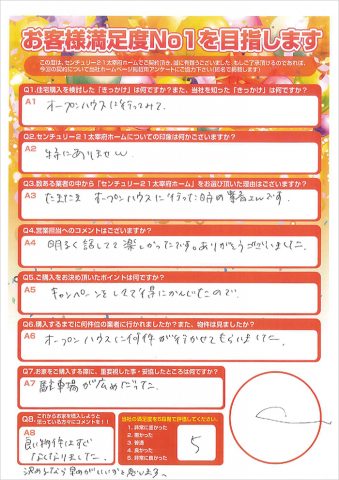 お客様満足度No1を目指します
この度は、センチュリー21太宰府ホームでご契約頂き、誠に有難うございました。もしご了承頂けるのであれば、
今回の契約について当社ホームページ掲載用アンケートにご協力下さい(匿名で掲載します)
Q1.住宅購入を検討した「きっかけ」は何ですか?また、当社を知った「きっかけ」は何ですか?
A1 オープンハウスに行ってみて。
Q2.センチュリー21太宰府ホームについての印象は何かございますか?
A2 特にありません
Q3.数ある業者の中から「センチュリー21太宰府ホーム」をお選び頂いた理由はございますか?
A3 たまたま オープンハウスに行った時の業者さんです。
Q4.営業担当へのコメントはございますか?
A4 明るく話してて楽しかったです。ありがとうございました。
Q5.ご購入をお決め頂いたポイントは何ですか?
A5 キャンペーンをしてて得にかんじたので。
Q6.購入するまでに何件位の業者に行かれましたか?また、物件は見ましたか?
A6 オープンハウスに何件か行かせてもらいました。
Q7.お家をご購入する際に、重要視した事・妥協したところは何ですか?
A7 駐車場が広めだった。
Q8. これからお家を購入しようと
思っている方々にコメントを!!
A8 良い物件はすぐ
なくなりました。
決めるなら早めがいいかと思います。
当社の満足度を5段階で評価してください。
1. 非常に悪かった
2. 悪かった
3. 普通
4. 良かった
5. 非常に良かった
5